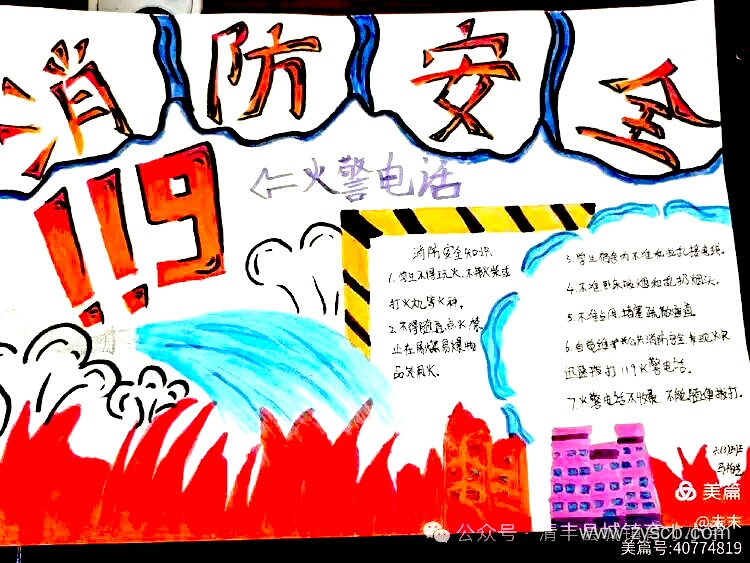 消防安全
119
←火警电话
消防安全知识
1.学生不得玩火,不带火柴或
打火机等火种。
2.不得随意点火,禁
止在易燃易爆物
品处用火。
3.学生宿舍内不准私拉乱接电线。
4.不准卧床吸烟和乱扔烟头。
5.不准占用、堵塞疏散通道
6.自觉维护公共消防安全,发现火灾
迅速拨打119火警电话。
7.火警电话不收费,不能随便拨打。
美篇
@末末
公众号
清丰县城镇
www.zyscb.com
美篇号:40774819